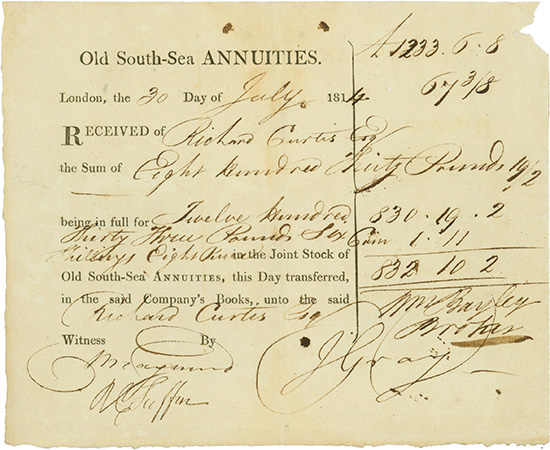 Old South-Sea ANNUITIES.
£1233. 6. 8
67 3/8
London, the 30 Day of July 1814
RECEIVED of Richard Curtis Esq
the Sum of Eight Hundred Thirty Pounds 19/2
being in full for Twelve Hundred
Thirty Three Pounds Six
Shillings Eight in the Joint Stock of
Old South-Sea ANNUITIES, this Day transferred,
in the said Company's Books, unto the said
Richard Curtis Esq
Witness By
J Gray
830. 19. 2
Com 1. 11
832 10 2
Wm
Broker